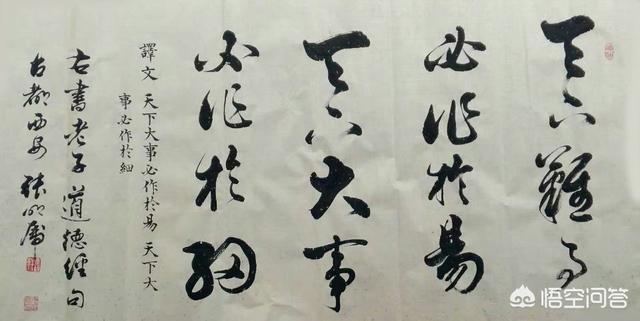 天下難事
必作於易
天下大事
必作於細
譯文 天下大事必作於易 天下大
事必作於細
右書老子道德經句
古都西安 張
悟空问答